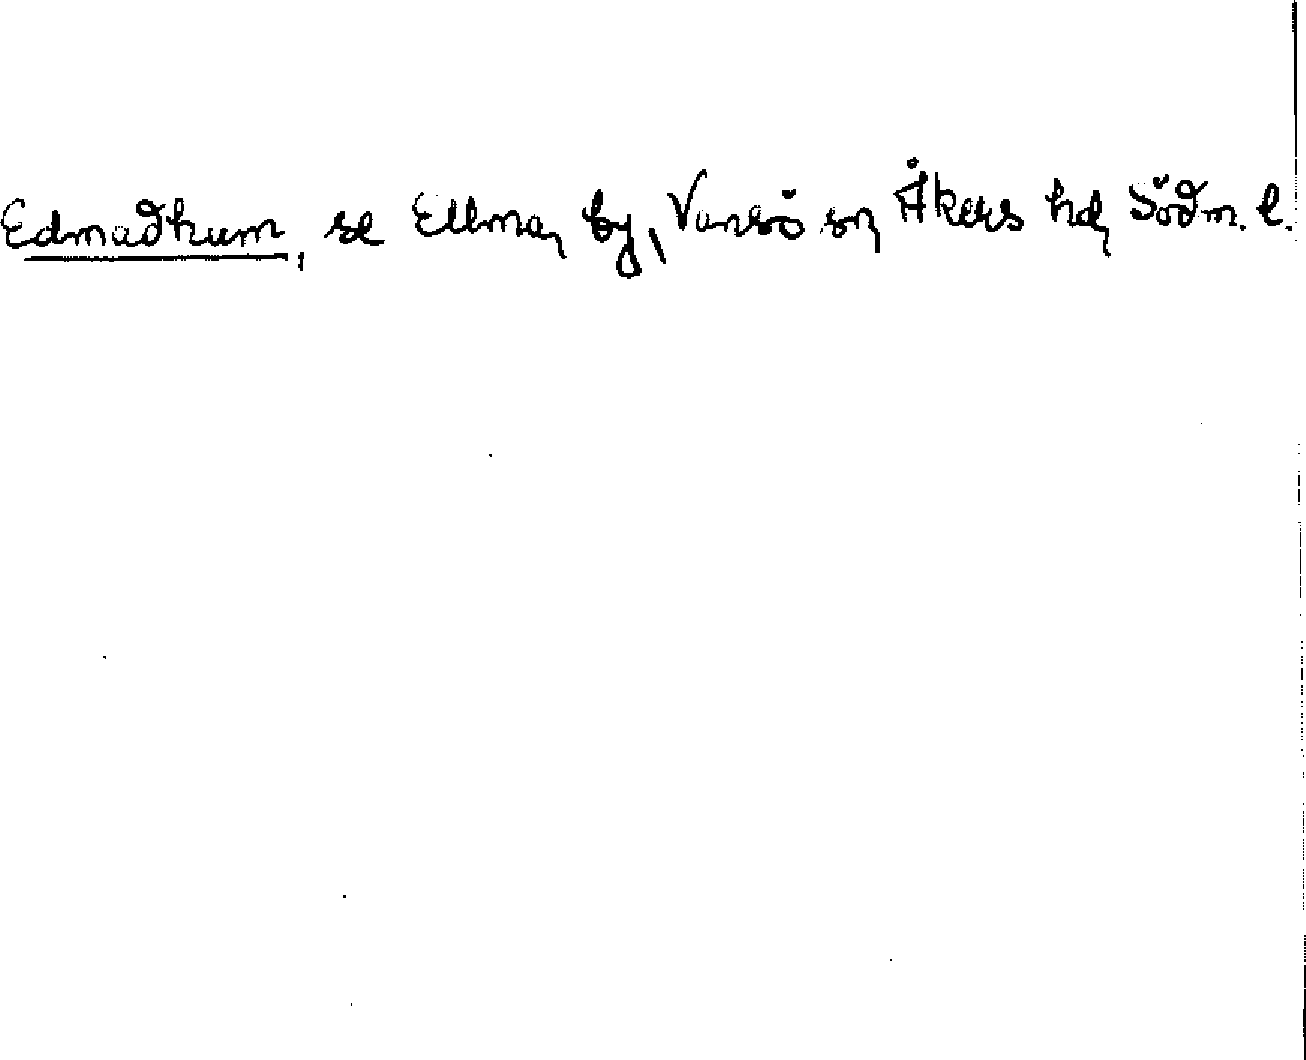 Edmadhum, se Ellma, by, Vansö sn, Åkers hd, Södm. l.